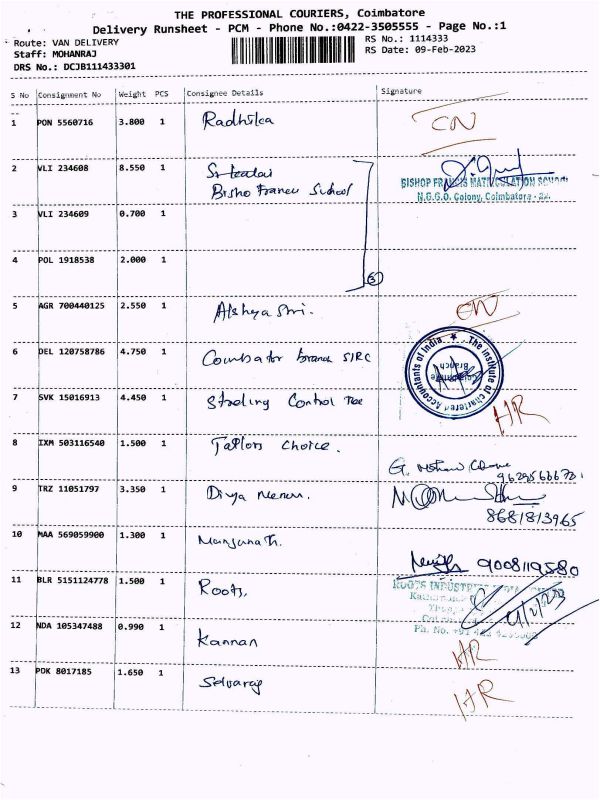 THE PROFESSIONAL COURIERS, Coimbatore
Delivery Runsheet - PCM - Phone No.:0422-3505555 - Page No.:1
Route: VAN DELIVERY
Staff: MOHANRAJ
DRS No.: DCJB111433301
RS No.: 1114333
RS Date: 09-Feb-2023
S No Consignment No Weight PCS Consignee Details Signature
1 PON 5560716 3.800 1 Radhika CN
2 VLI 234608 8.550 1
Bisho Francu School
BISHOP FRANCIS MATRICULATION SCHOOL
N.G.G.O. Colony, Coimbatore - 22.
3 VLI 234609 0.700 1
4 POL 1918538 2.000 1
3
5 AGR 700440125 2.550 1 CN
6 DEL 120758786 4.750 1 Coimbator branch SIRC
The Institute of Chartered Accountants of India
Coimbatore Branch
7 SVK 15016913 4.450 1 Control HR
8 IXM 503116540 1.500 1 Choice.
G.
9 TRZ 11051797 3.350 1 Divya Menon.
8681813965
10 MAA 569059900 1.300 1 Manjunath.
9008119580
11 BLR 5151124778 1.500 1 Roots,
ROOTS INDUSTRIES
12 NDA 105347488 0.990 1 Kannan HR
13 PDK 8017185 1.650 1 Selvaraj HR